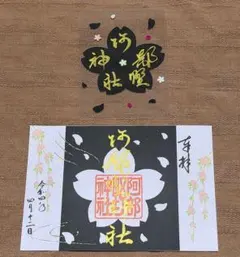 阿部野神社
奉拝
阿部野神社
阿部野神社
令和四年
四月十二日